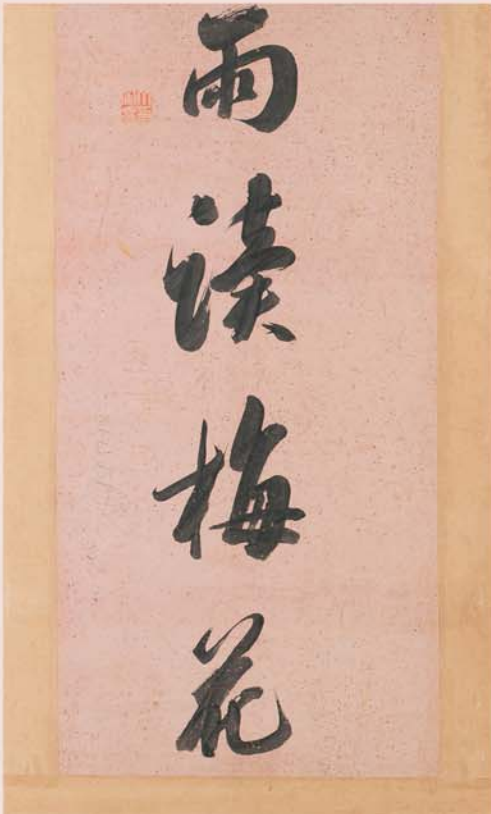 雨讀梅花